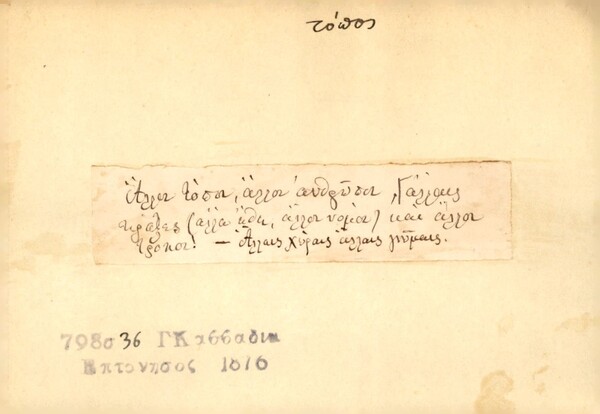 τόπος
Ἄλλοι τόποι, ἄλλοι ἄνθρῶποι, ἄλλαις
πράξες (ἄλλα ἔθη, ἄλλοι νόμοι) και ἄλλοι
τρόποι. — Ἄλλαις χώραις ἄλλαις γνῶμαις.
798σ 36 Γ Καββαδια
Επτονησος 1876